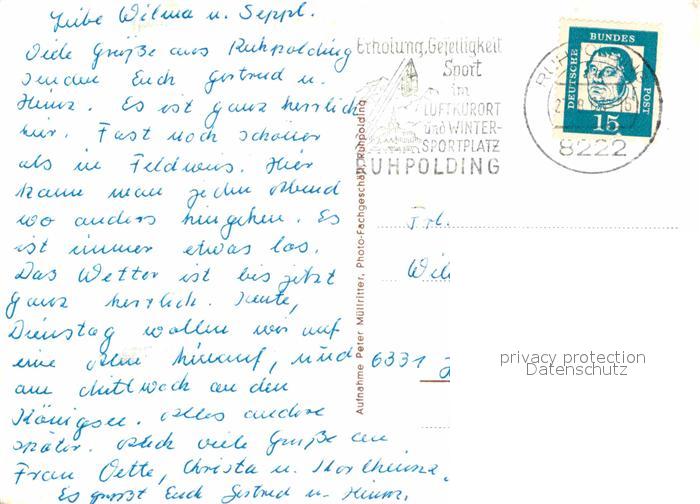 Liebe Wilma u. Seppl.
Viele Grüße aus Ruhpolding
senden Euch Gertrud u.
Heinz. Es ist ganz herrlich
hier. Fast noch schöner
als in Feldwies. Hier
kann man jeden Abend
wo anders hingehen. Es
ist immer etwas los.
Das Wetter ist bis jetzt
ganz herrlich. Heute,
Dienstag wollen wir auf
eine Alm hinauf, und
am Mittwoch an den
Königsee. Alles andere
später. Auch viele Grüße an
Frau Oette, Christa u. Karlheinz.
Es grüßt Euch Gertrud u. Heinz.
Aufnahme Peter Müllritter, Photo-Fachgeschäft, Ruhpolding
Erholung, Geselligkeit
Sport
im
LUFTKURORT
und WINTER-
SPORTPLATZ
RUHPOLDING
8222
DEUTSCHE BUNDES POST
15
Frl.
Wil
6331
privacy protection
Datenschutz